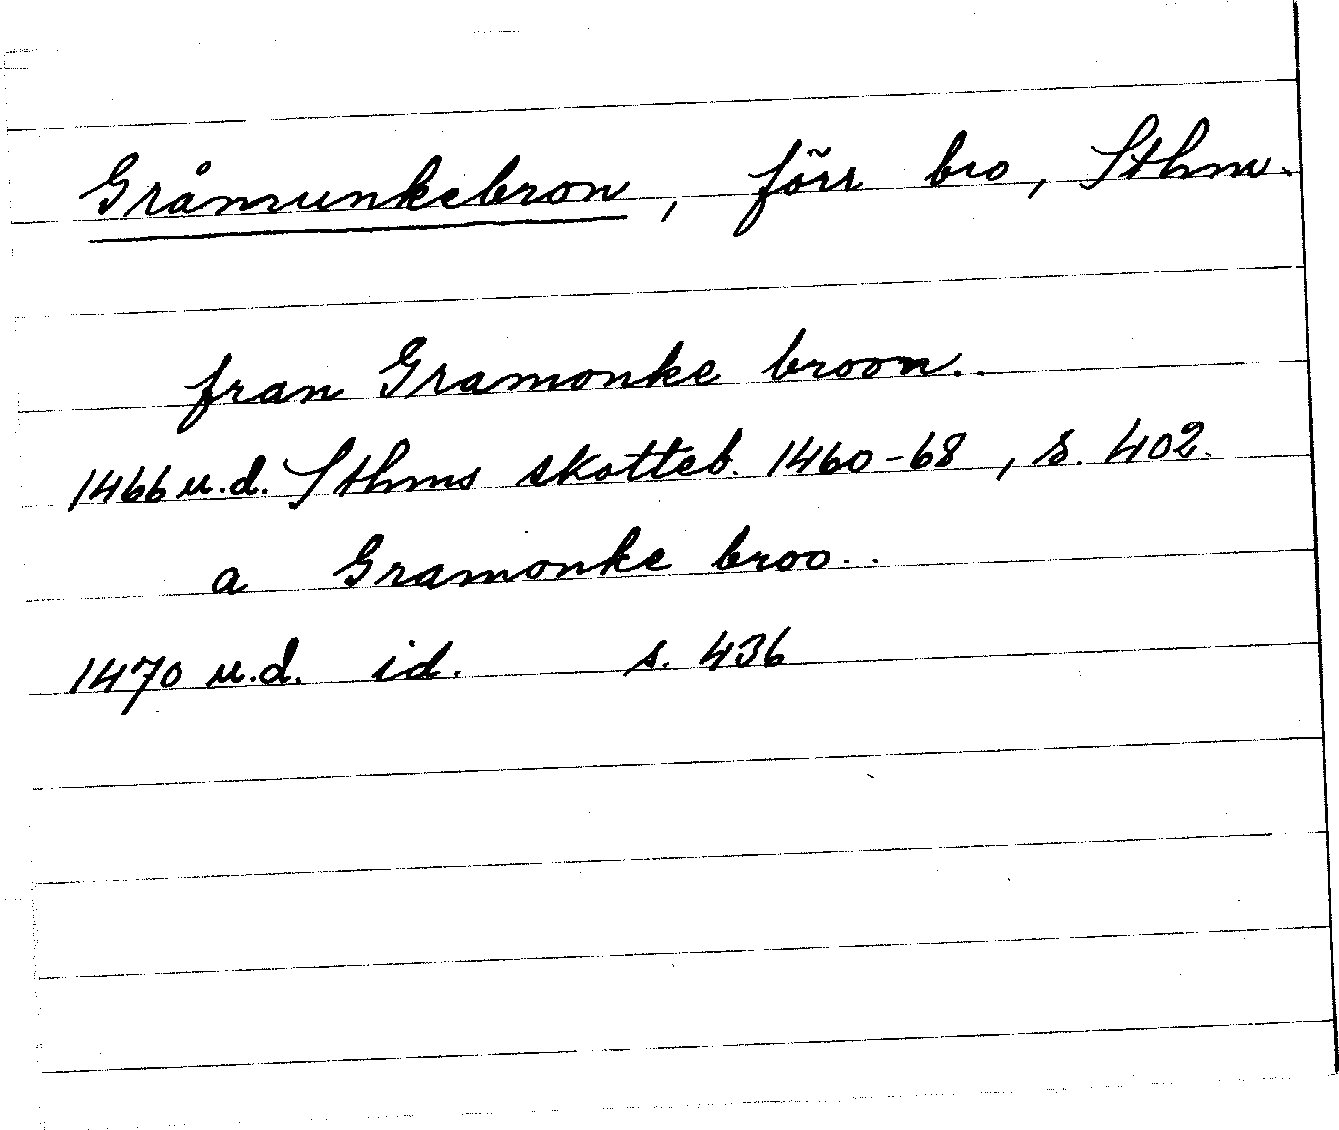 Gråmunkebron, förr bro, Sthm.
fran Gramonke broon..
1466 u.d. Sthms skotteb. 1460-68, s. 402.
a Gramonke broo..
1470 u.d. id. s. 436